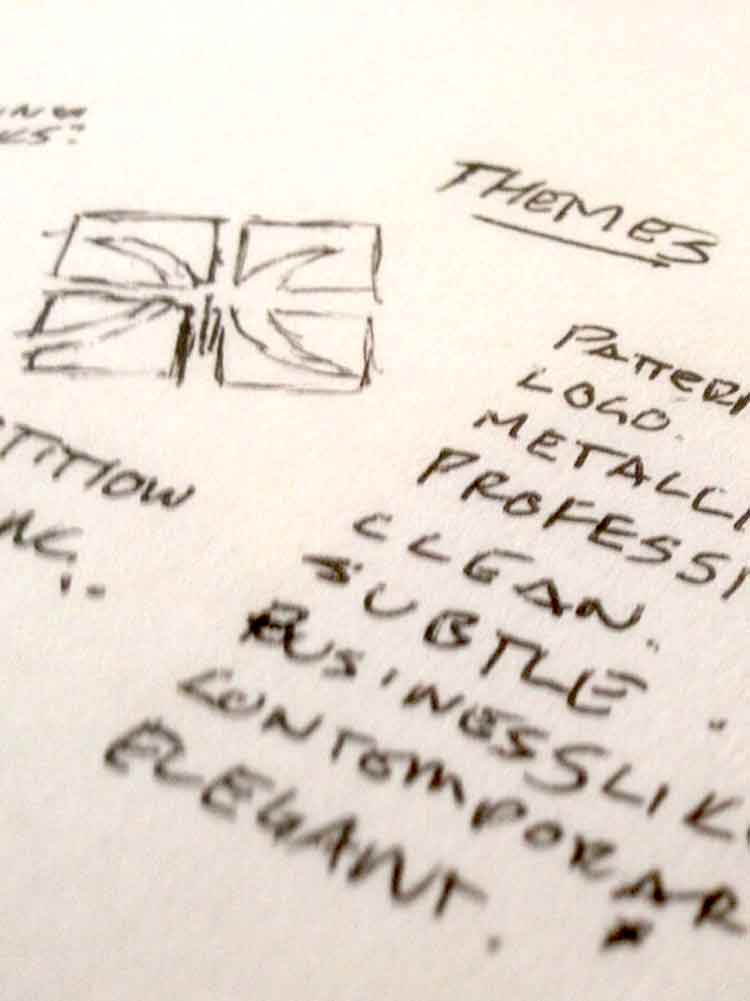 THEMES
PATTERN
LOGO.
METALLI
PROFESSI
CLEAN.
SUBTLE.
BUSINESSLIK
CONTEMPORAR
ELEGANT.
TITION